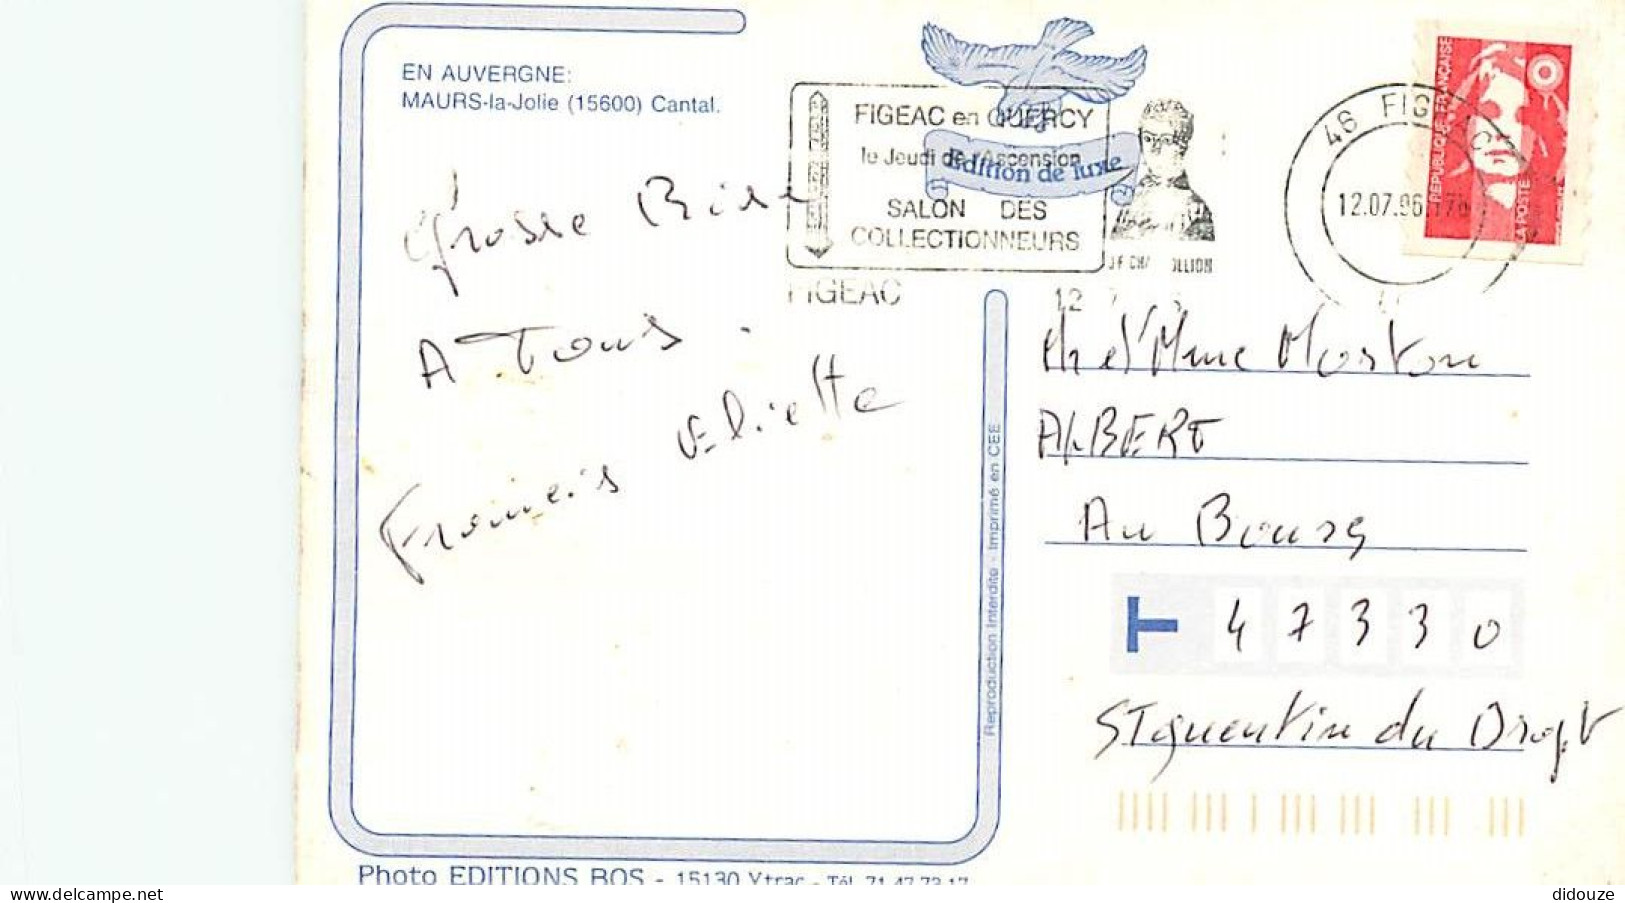 EN AUVERGNE:
MAURS-la-Jolie (15600) Cantal.
FIGEAC en QUERCY
le Jeudi de l'Ascension
Edition de luxe
SALON DES
COLLECTIONNEURS
FIGEAC
46 FIGEAC
12.07.96
RÉPUBLIQUE FRANÇAISE
LA POSTE
Grosse Bise
A Tous.
Francis Eliette
Reproduction Interdite - Imprimé en CEE
M et Mme Moston
ALBERT
Au Bourg
47330
St quentin du Dropt
Photo EDITIONS BOS - 15130 Ytrac - Tél. 71.47.73.17
didouze